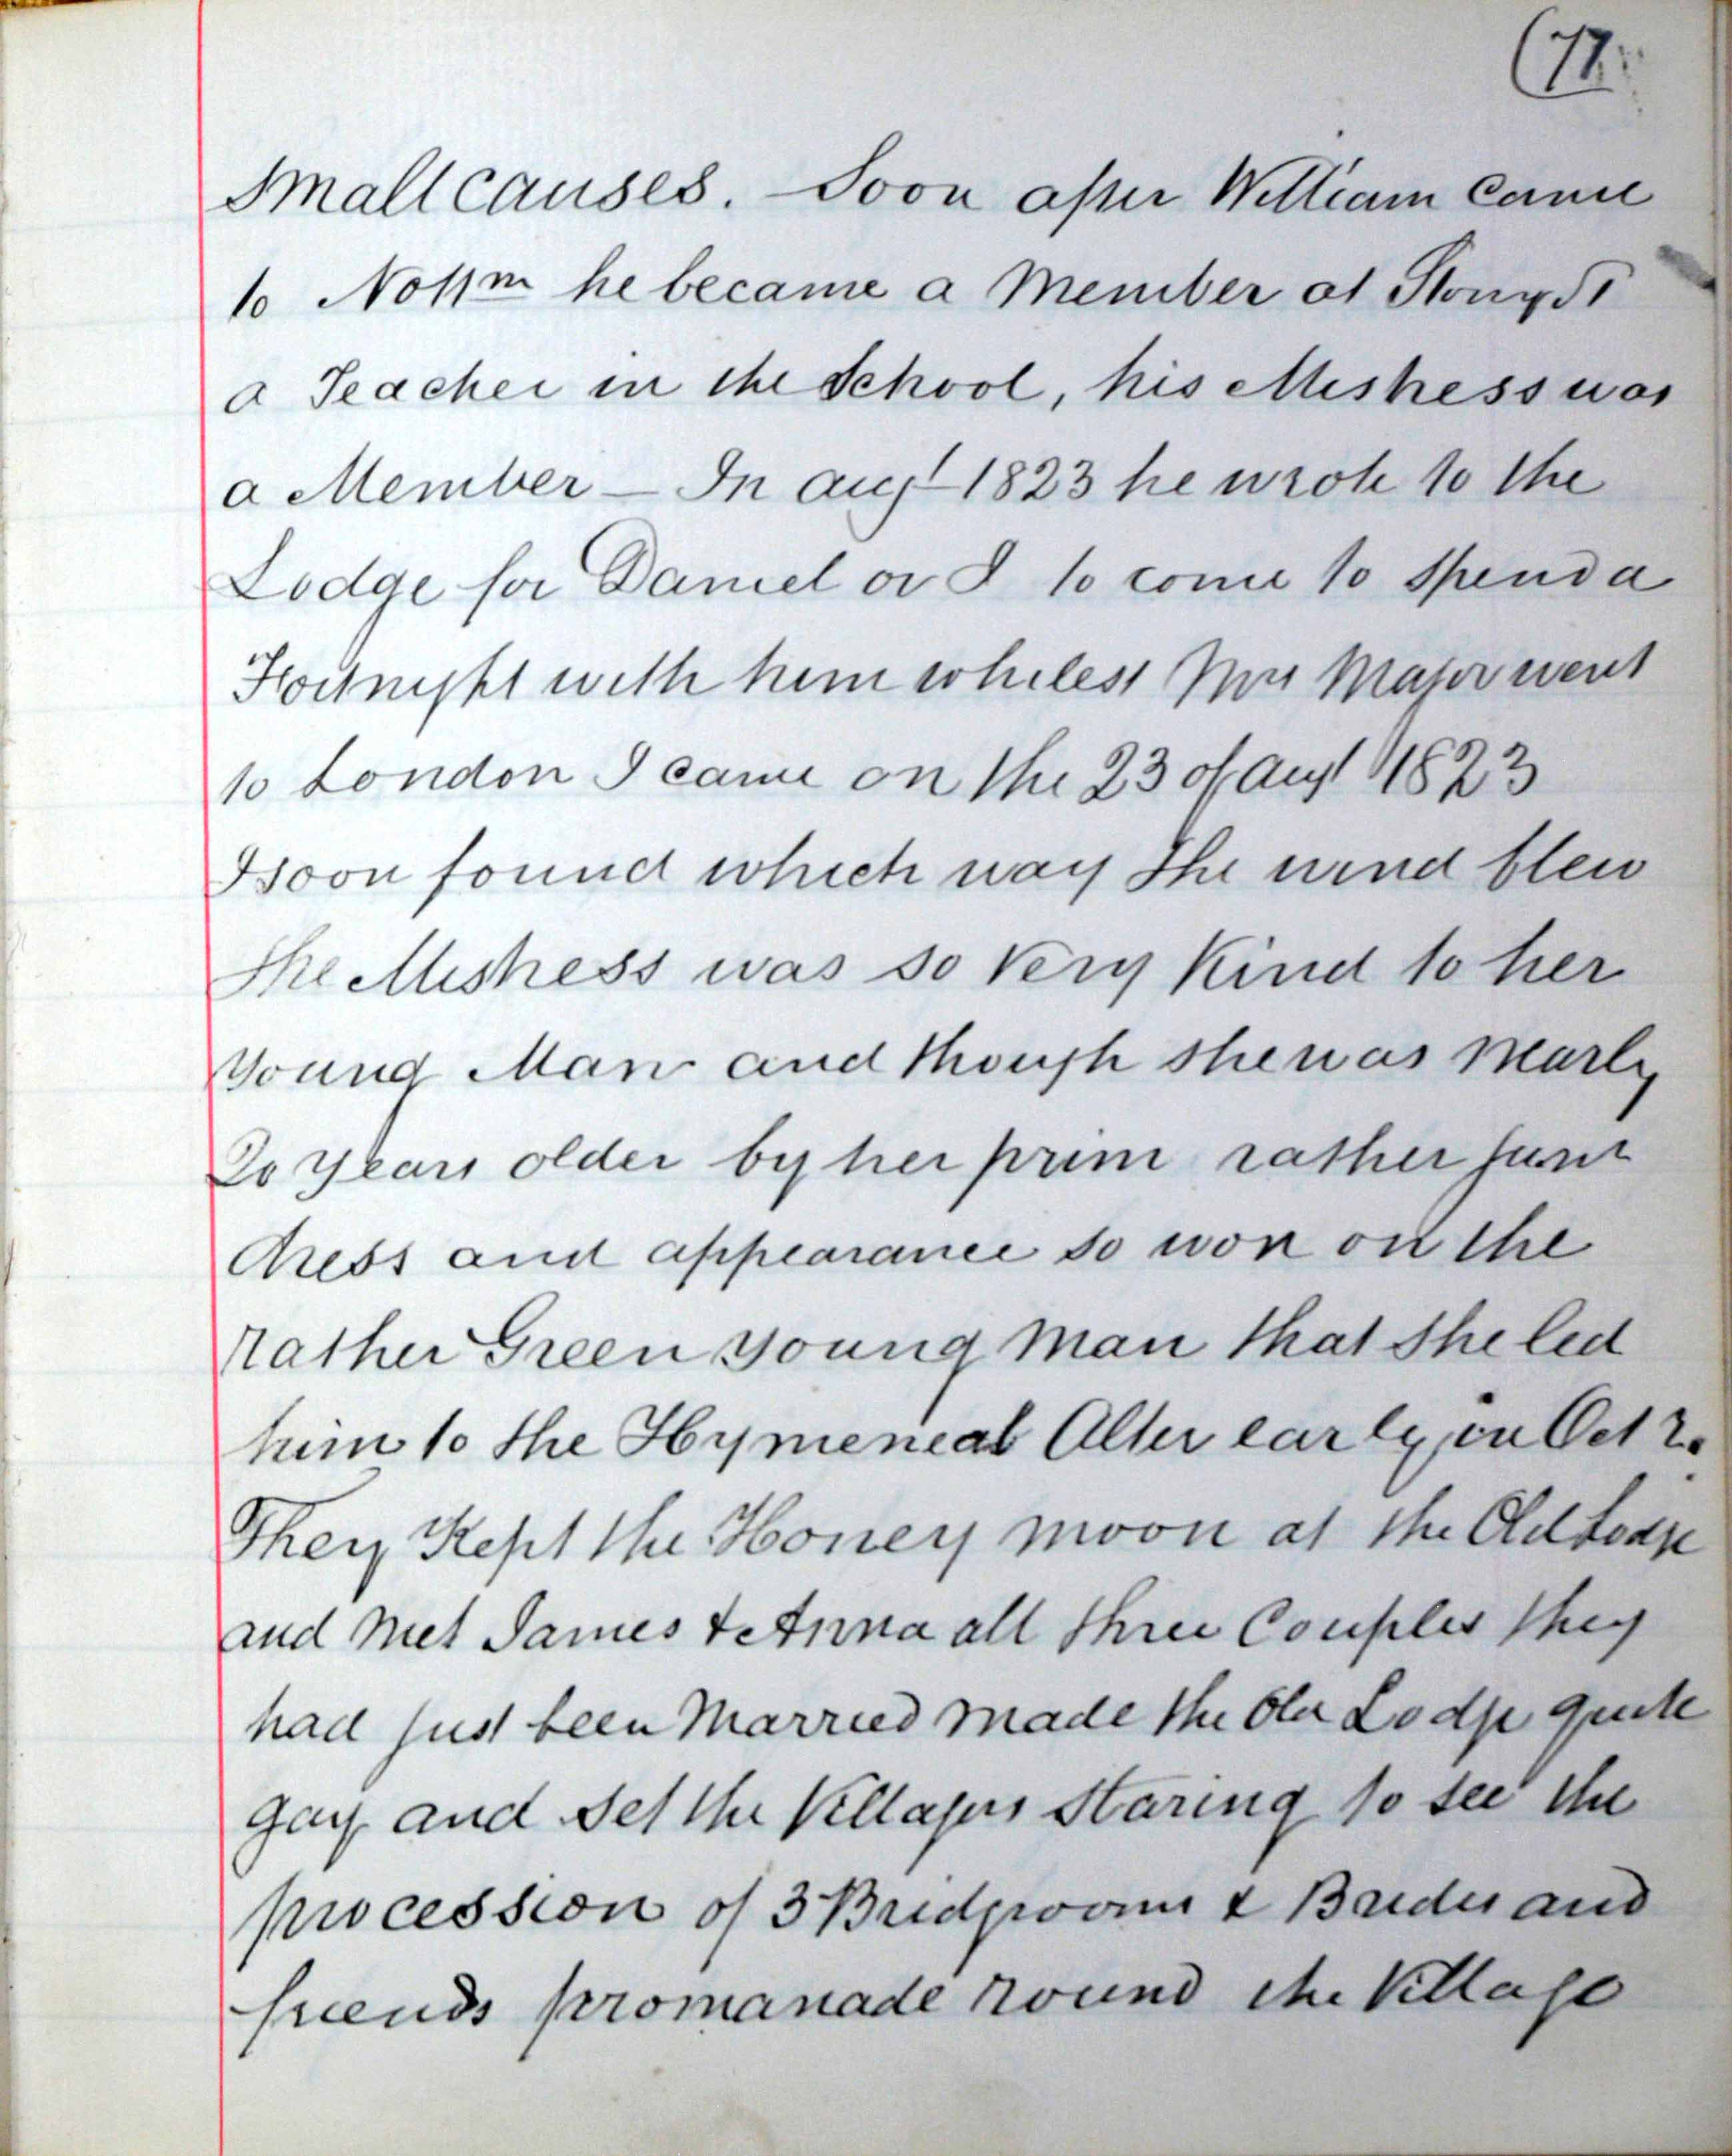 (77.
Small causes. - Soon after William came
to Nottm he became a Member at Stony St
a Teacher in the School, his Mistress was
a Member - In augt 1823 he wrote to the
Lodge for Daniel or I to come to spend a
Fortnight with him whilest Mrs Major went
to London I came on the 23 of augt 1823
I soon found which way the wind blew
The Mistress was so very Kind to her
young Man and though she was nearly
20 years older by her prim rather
dress and appearance so won on the
rather Green young man that she led
him to the Hymeneal Alter early in Oct
They Kept the Honey moon at the Old Lodge
and met James & Anna all three Couples they
had just been Married made the Old Lodge quite
gay and set the Villagers staring to see the
procession of 3 Bridgrooms & Brides and
friends promanade round the Village